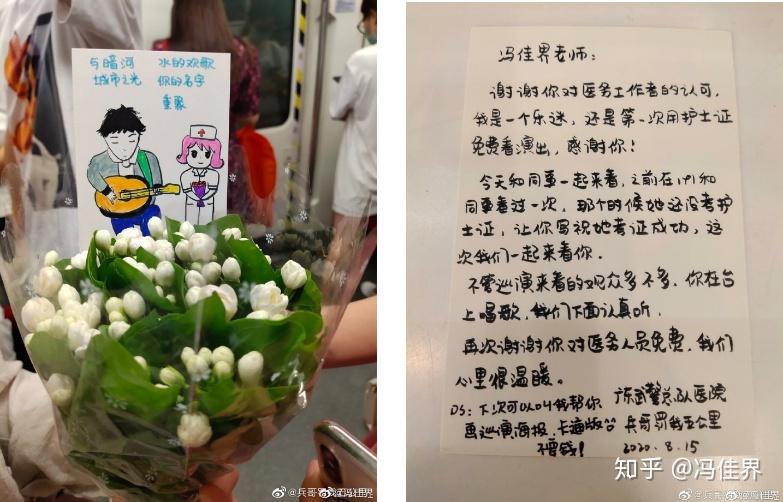 与暗河
城市之光
水的欢歌
你的名字
重聚
@兵哥
@冯佳界
冯佳界老师:
谢谢你对医务工作者的认可,
我是一个乐迷,还是第一次用护士证
免费看演出,感谢你!
今天和同事一起来看,之前在1701和
同事看过一次,那个时候她还没考护
士证,让你写祝她考证成功,这
次我们一起来看你。
不管巡演来看的观众多不多,你在台
上唱歌,我们下面认真听.
再次谢谢你对医务人员免费,我们
心里很温暖。
PS:下次可以叫我帮你
画巡演海报,卡通版
不要钱!
广东武警总队医院
兵哥
2020.8.15
知乎 @冯佳界
@冯佳界